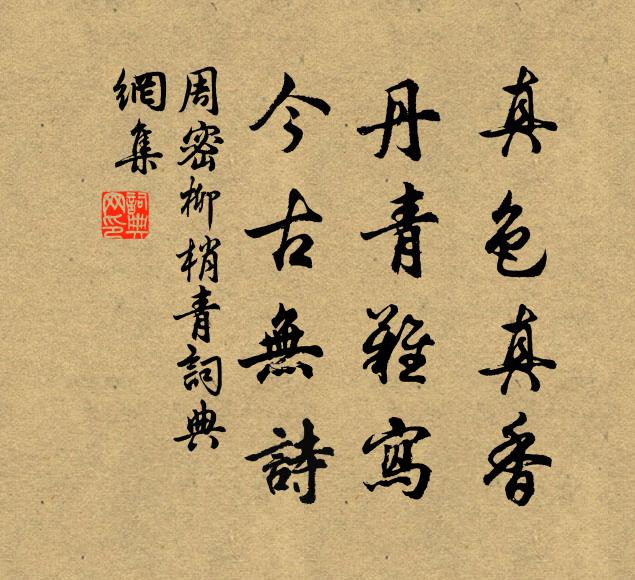 真色真香
丹青難寫
今古無詩
周密柳梢青詞典
網集
詞典
网印